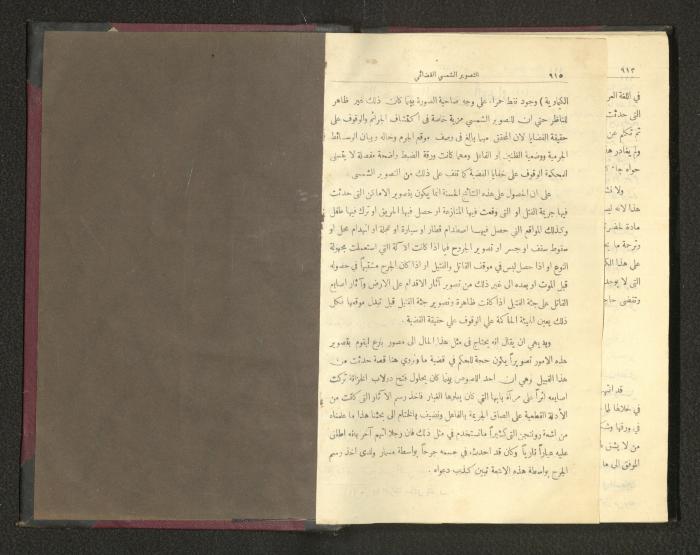 ٩١٥
التصوير الشمسي القضائي
الكياوية ) وجود نقط حمراء على وجه صاحبة الصورة بينما كان ذلك غير ظاهر
للناظر حتى ان للتصوير الشمسي مزية خاصة في اكتشاف الجرائم والوقوف على
حقيقة القضايا لان المحقق مهما بالغ في وصف موقع الجرم وحاله وبيان الوسائط
الجرمية ووضعية الظنين او القاتل ومهما كانت ورقة الضبط واضحة مفصلة لا يتسنى
للمحكمة الوقوف على خفايا القضية كما تقف على ذلك من التصوير الشمسي .
على ان الحصول على هذه النتائج الحسنة انما يكون بتصوير الاماكن التي حدثت
فيها جريمة القتل او التي وقعت فيها المنازعة او حصل فيها الحريق او ترك فيها طفل
وكذلك المواقع التي حصل فيها اصطدام قطار او سيارة او عجلة او انهدام محل او
سقوط سقف او جسر او تصوير الجروح فيما اذا كانت الآلة التي استعملت مجهولة
النوع او اذا حصل لبس في موقف القاتل والقتيل او اذا كان الجرح مشتبهاً في حصوله
قبل الموت او بعده الى غير ذلك من تصوير آثار الاقدام على الارض وآثار اصابع
القاتل على جثة القتيل اذا كانت ظاهرة وتصوير جثة القتيل قبل تبدل موقعها فكل
ذلك يعين الهيئة الحاكمة على الوقوف على حقيقة القضية .
وبديهي ان يقال انه يحتاج في مثل هذا الحال الى مصور بارع ليقوم بتصوير
هذه الامور تصويراً يكون حجة للحكم في قضية ما ونروي هنا قصة حدثت من
هذا القبيل وهي ان احد اللصوص بينما كان يحاول فتح دولاب الخزانة تركت
اصابعه اثراً على مرآة بابها التي كان يعلوها الغبار فاخذ رسم الآثار التي كانت من
الأدلة القطعية على الصاق الجريمة بالفاعل ونضيف بالختام الى بحثنا هذا ما علمناه
من اشعة رونتجين التي كثيراً ما تستخدم في مثل ذلك فان رجلا اتهم آخر بانه اطلق
عليه عياراً نارياً وكان قد احدث في جسمه جرحاً بواسطة مسمار ولدى اخذ رسم
الجرح بواسطة هذه الاشعة تبين كذب دعواه .
٩١٣
في اللغة العر
التي حدثت
ثم تكلم عن
ولم يغادر هذ
هذا لانه ليس
على هذا الك
التي لا يوجد
وتقضي حاج
في خلالها لما
في ورقها وشك
من لا يشق
الموفق الى ما